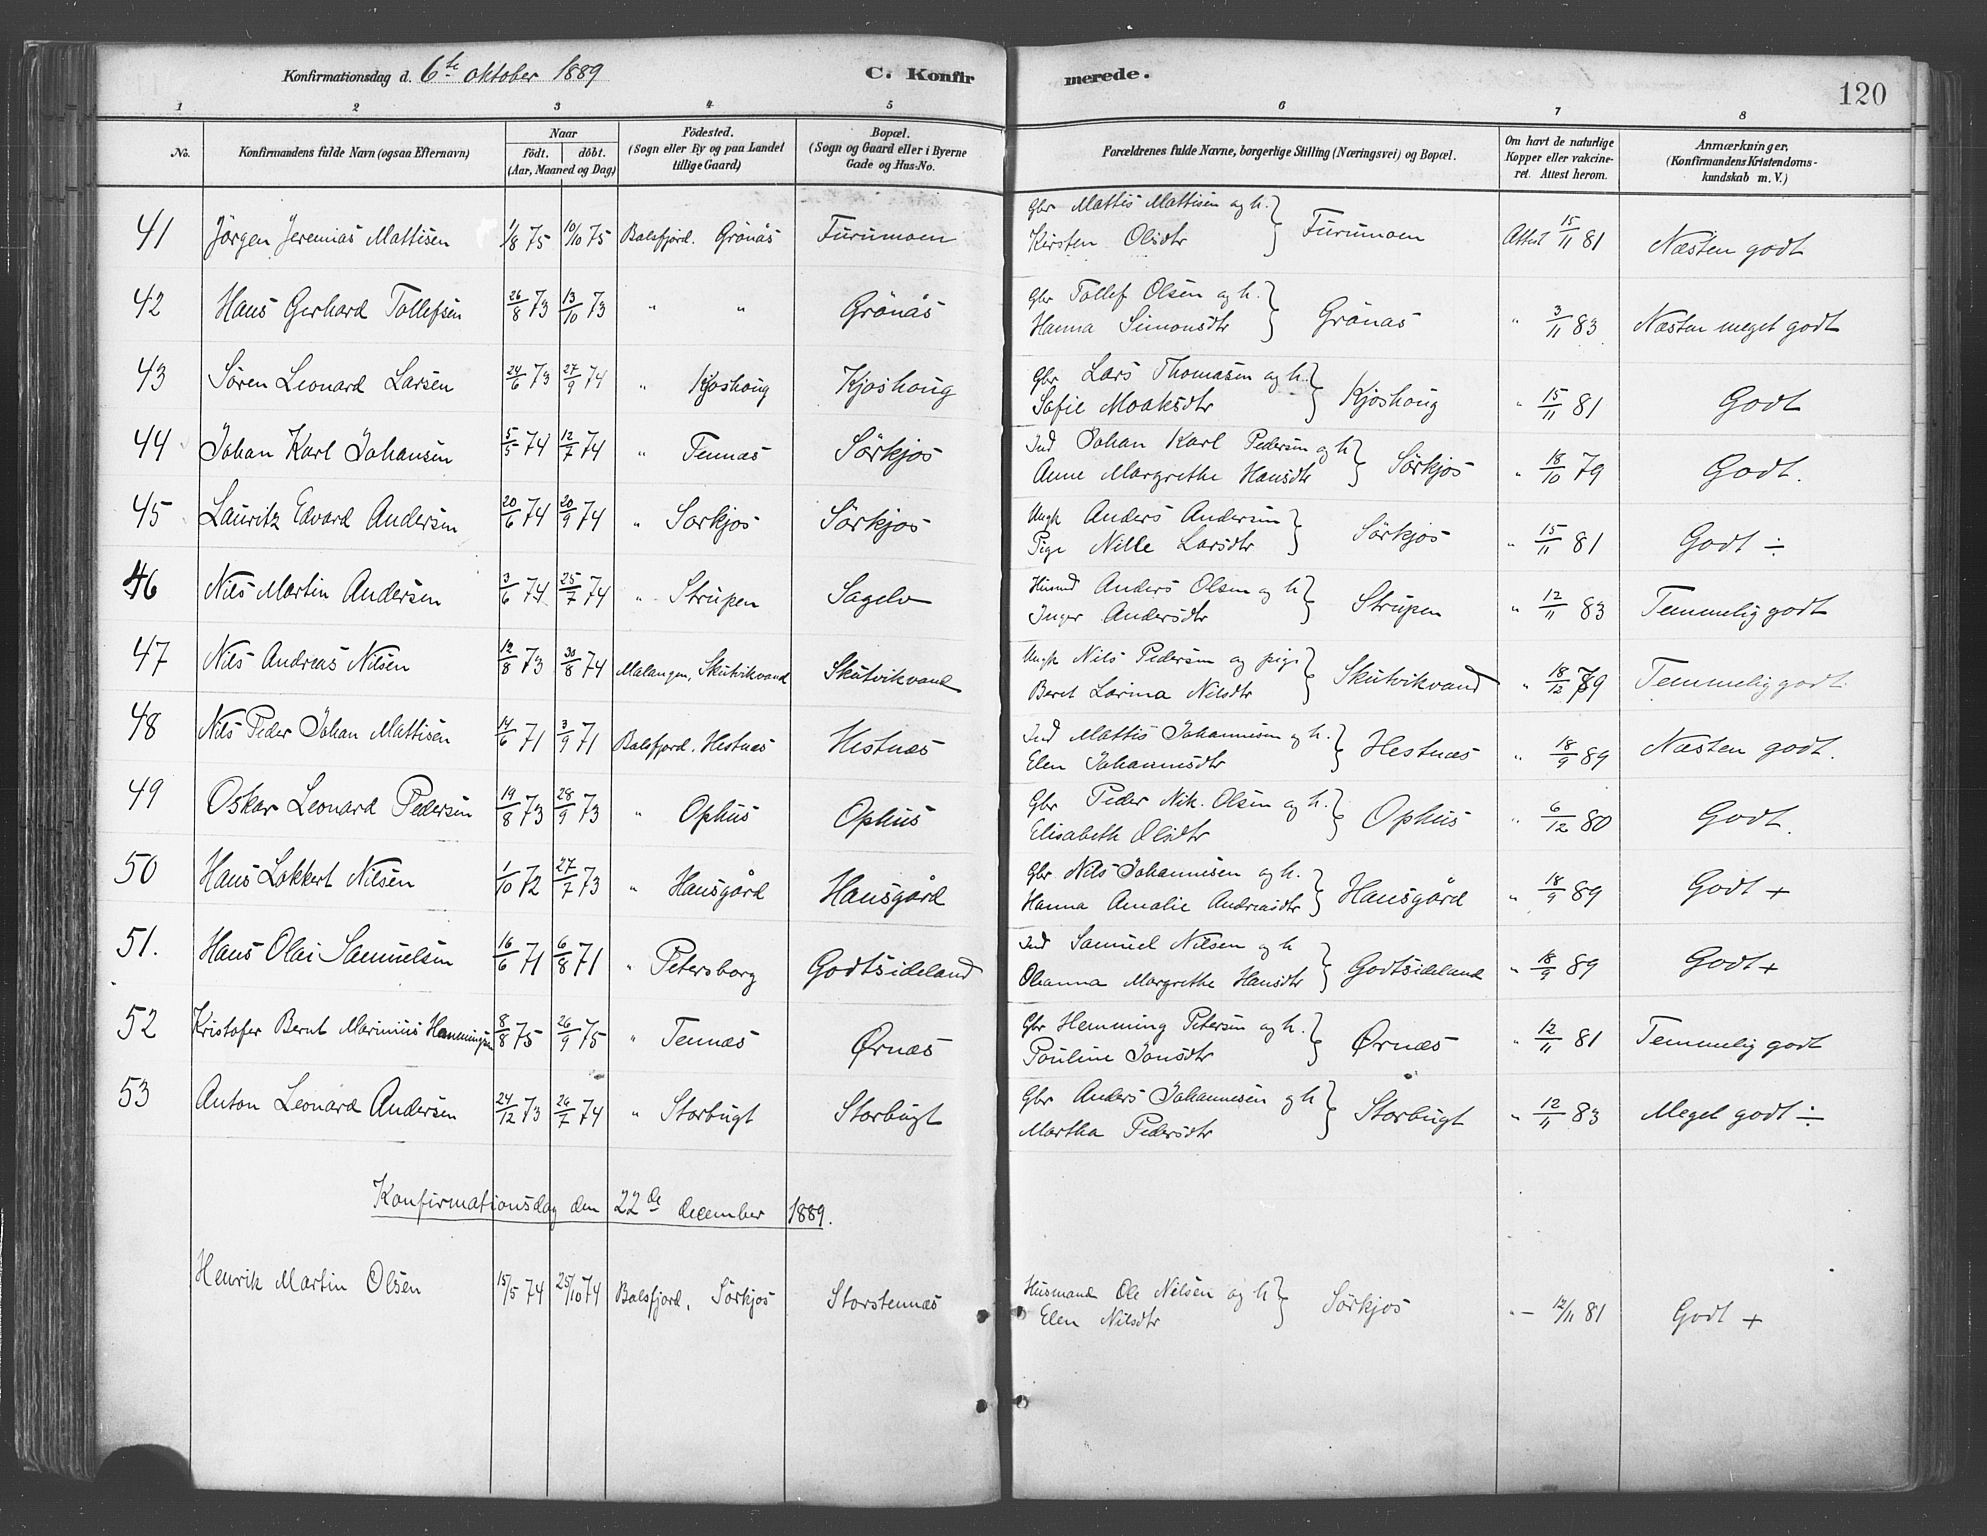 Konfirmationsdag d. 6te oktober 1889 C. Konfirmerede. 120
1 2 3 4 5 6 7 8
No. Konfirmandens fulde Navn (ogsaa Efternavn) Naar födt. döbt. (Aar, Maaned og Dag) Födested. (Sogn eller By og paa Landet tillige Gaard) Bopæl. (Sogn og Gaard eller i Byerne Gade og Hus-No. Forældrenes fulde Navne, borgerlige Stilling (Næringsvei) og Bopæl. Om havt de naturlige Kopper eller vakcineret. Attest herom. Anmærkninger, (Konfirmandens Kristendomskundskab m. V.)
41 Jörgen Jeremias Mattisen 1/8 75 10/10 75 Balsfjord. Grönås Furumoen Gbr Mattis Mattisen og h. Kirsten Olsdtr } Furumoen Attest 15/11 81 Næsten godt
42 Hans Gerhard Tollefsen 26/8 73 13/10 73 " " Grönås Gbr Tollef Olsen og h. Hanna Simonsdtr } Grönas " 3/11 83 Næsten meget godt
43 Sören Leonard Larsen 24/6 73 27/9 74 " Kjoshoug Kjoshoug Gbr Lars Thomasen og h. Sofie Moaksdtr } Kjoshoug " 15/11 81 Godt
44 Johan Karl Johansen 5/5 74 12/7 74 " Tennæs Sörkjos Ind Johan Karl Pedersen og h Anne Margrethe Hansdtr } Sörkjos " 18/10 79 Godt.
45 Lauritz Edvard Andersen 20/6 74 20/9 74 " Sorkjos Sörkjos Ungk Anders Andersen Pige Nille Larsdtr } Sörkjos " 15/11 81 Godt ÷
46 Nils Martin Andersen 3/6 74 25/7 74 " Strupen Sagelv Husmd Anders Olsen og h Inger Andersdtr } Strupen " 12/11 83 Temmelig godt
47 Nils Andreas Nilsen 12/8 73 30/8 74 Malangen, Skutvikvand Skutvikvand Ungk Nils Pedersen og pige Beret Larina Nilsdtr } Skutvikvand " 18/12 89 Temmelig godt.
48 Nils Peder Johan Mattisen 14/6 71 3/9 71 Balsfjord. Hestnæs Hestnæs Ind Mattis Johannesen og h. Elen Johannesdtr } Hestnæs " 18/9 89 Næsten godt.
49 Oskar Leonard Pedersen 19/8 73 28/9 73 " Ophus Ophus Gbr Peder Nik. Olsen og h. Elisabeth Olsdtr } Ophus " 6/12 80 Godt.
50 Hans Lokkert Nilsen 1/10 72 27/7 73 " Hansgård Hansgård Gbr Nils Johannesen og h. Hanna Amalie Andreasdtr } Hansgård " 18/9 89 Godt +
51. Hans Olai Samuelsen 16/6 71 6/8 71 " Petersborg Godtsideland Ind Samuel Nilsen og h Oleanna Margrethe Hansdtr } Godtsideland " 18/9 89 Godt +
52 Kristofer Bernt Marinius Hemmingsen 8/8 75 26/9 75 " Tennæs Ørnæs Gbr Hemming Petersen og h. Pauline Jonsdtr } Ørnæs " 12/11 81 Temmelig godt
53 Anton Leonard Andersen 24/12 73 26/7 74 " Storbugt Storbugt Gbr Anders Johannesen og h Martha Pedersdtr } Storbugt " 12/11 83 Meget godt ÷
Konfirmationsdag den 22de december 1889.
Henrik Martin Olsen 15/5 74 25/10 74 Balsfjord, Sörkjos Storstennæs Husmand Ole Nilsen og h Elen Nilsdtr } Sörkjos " – 12/11 81 Godt +